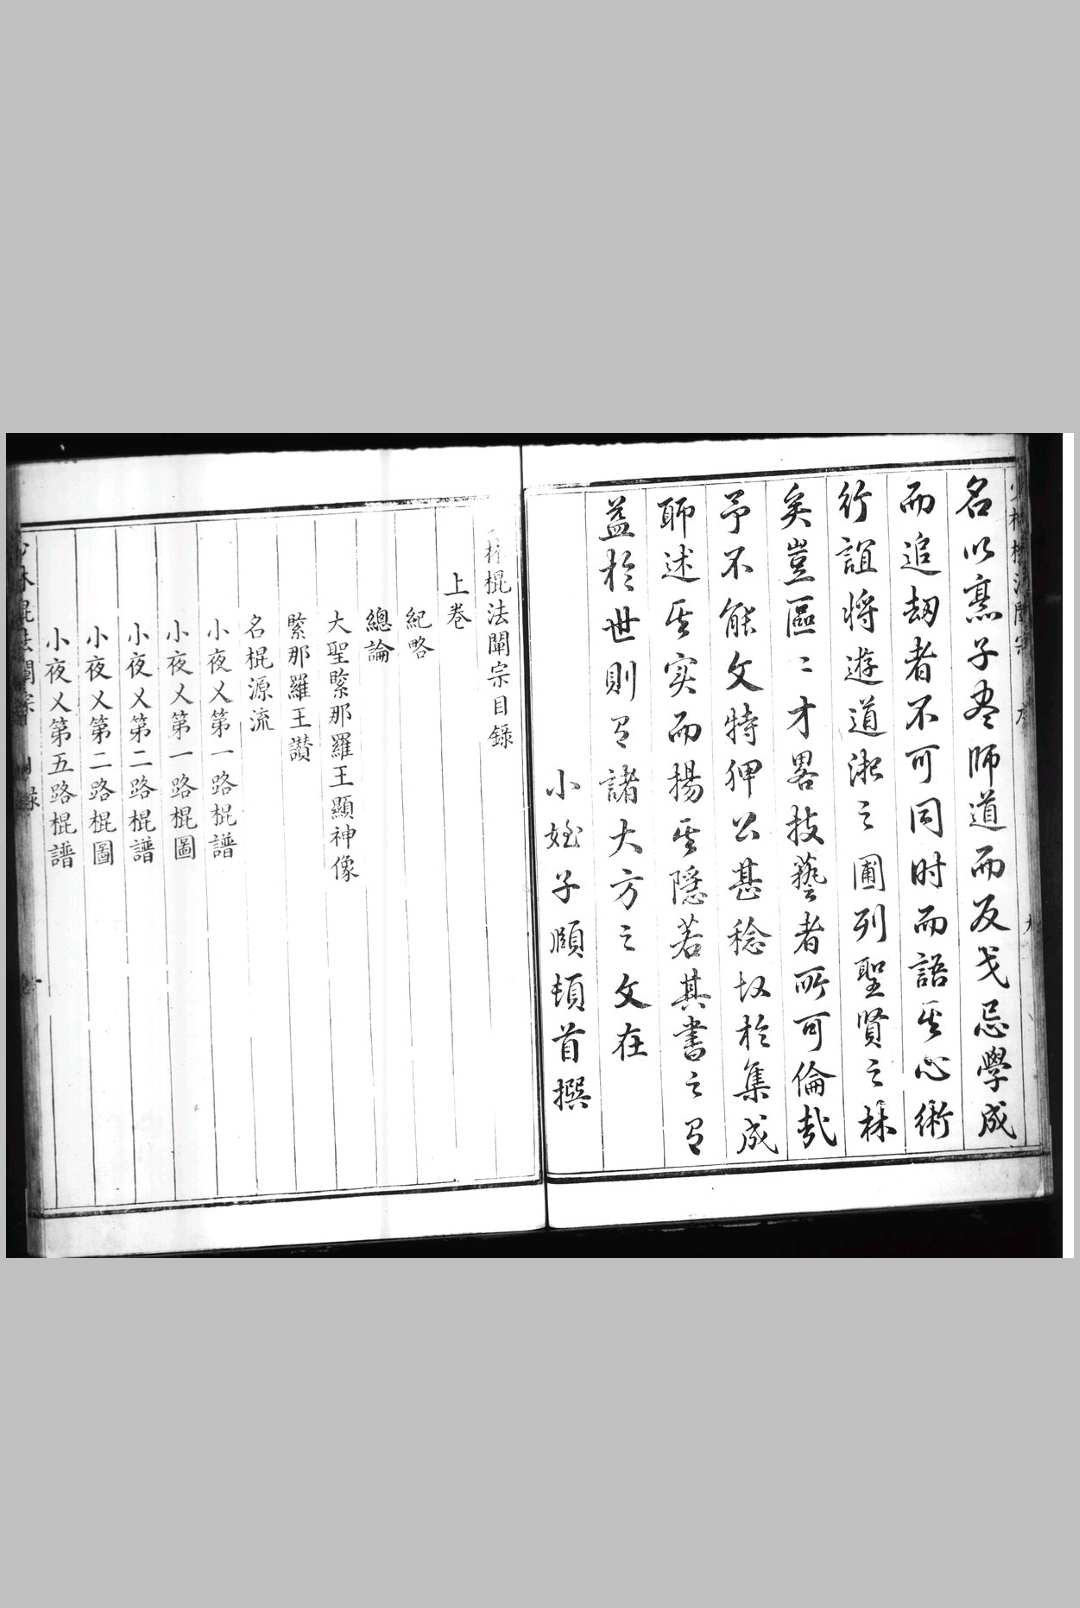 名以烹子老師道而反戈忌學成
而追劫者不可同时而語其心術
行誼将遊道淑之圃列聖賢之林
矣豈區〻才畧技藝者所可倫哉
予不能文特狎公甚稔故於集成
聊述其实而揚其隱若其書之有
益於世則有諸大方之文在
小姪子頤頓首撰
林棍法闡宗目錄
上巻
紀略
總論
大聖緊那羅王顯神像
緊那羅王讃
名棍源流
小夜乂第一路棍譜
小夜乂第一路棍圖
小夜乂第二路棍譜
小夜乂第二路棍圖
小夜乂第五路棍譜
少林棍法闡宗 目錄